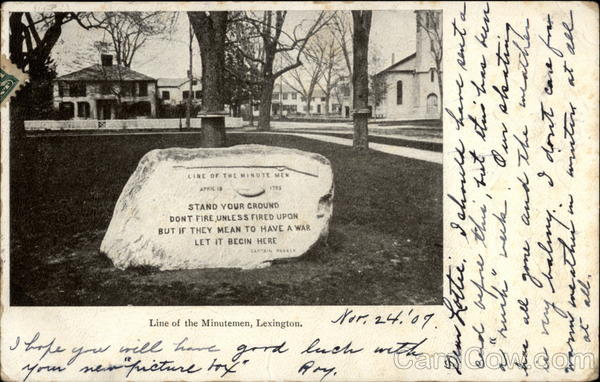 LINE OF THE MINUTE MEN
APRIL 19 1775
STAND YOUR GROUND
DONT FIRE, UNLESS FIRED UPON
BUT IF THEY MEAN TO HAVE A WAR
LET IT BEGIN HERE
CAPTAIN PARKER
Line of the Minutemen, Lexington.
Nov. 24.'07.
Dear Lottie. I should have sent a
card before this, but this has been
a "rush" week. Our skating
has all gone and the weather
is very balmy. I don't care for
warm weather in winters at all
at all.
I hope you will have good luck with
your new "picture box" Roy.
CardCow.com